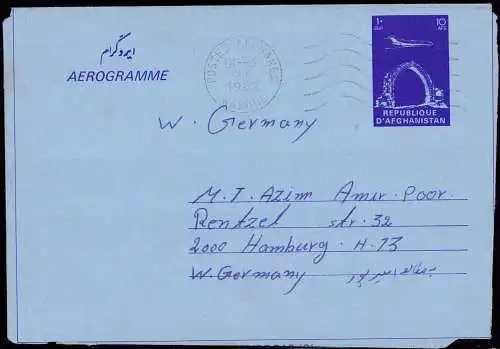 ایروگرام
AEROGRAMME
POSTES AFGHANES
1982
۱۰ 10
AFS
REPUBLIQUE
D'AFGHANISTAN
W. Germany
M. T. Azim Amir Poor.
Rentzel str. 32
2000 Hamburg. H. 13
W. Germany
امیر پور